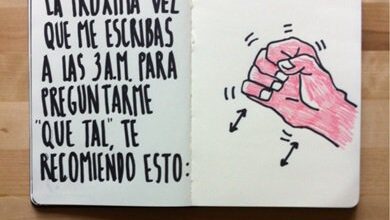 LA PRÓXIMA VEZ
QUE ME ESCRIBAS
A LAS 3 A.M. PARA
PREGUNTARME
"QUE TAL", TE
RECOMIENDO ESTO: